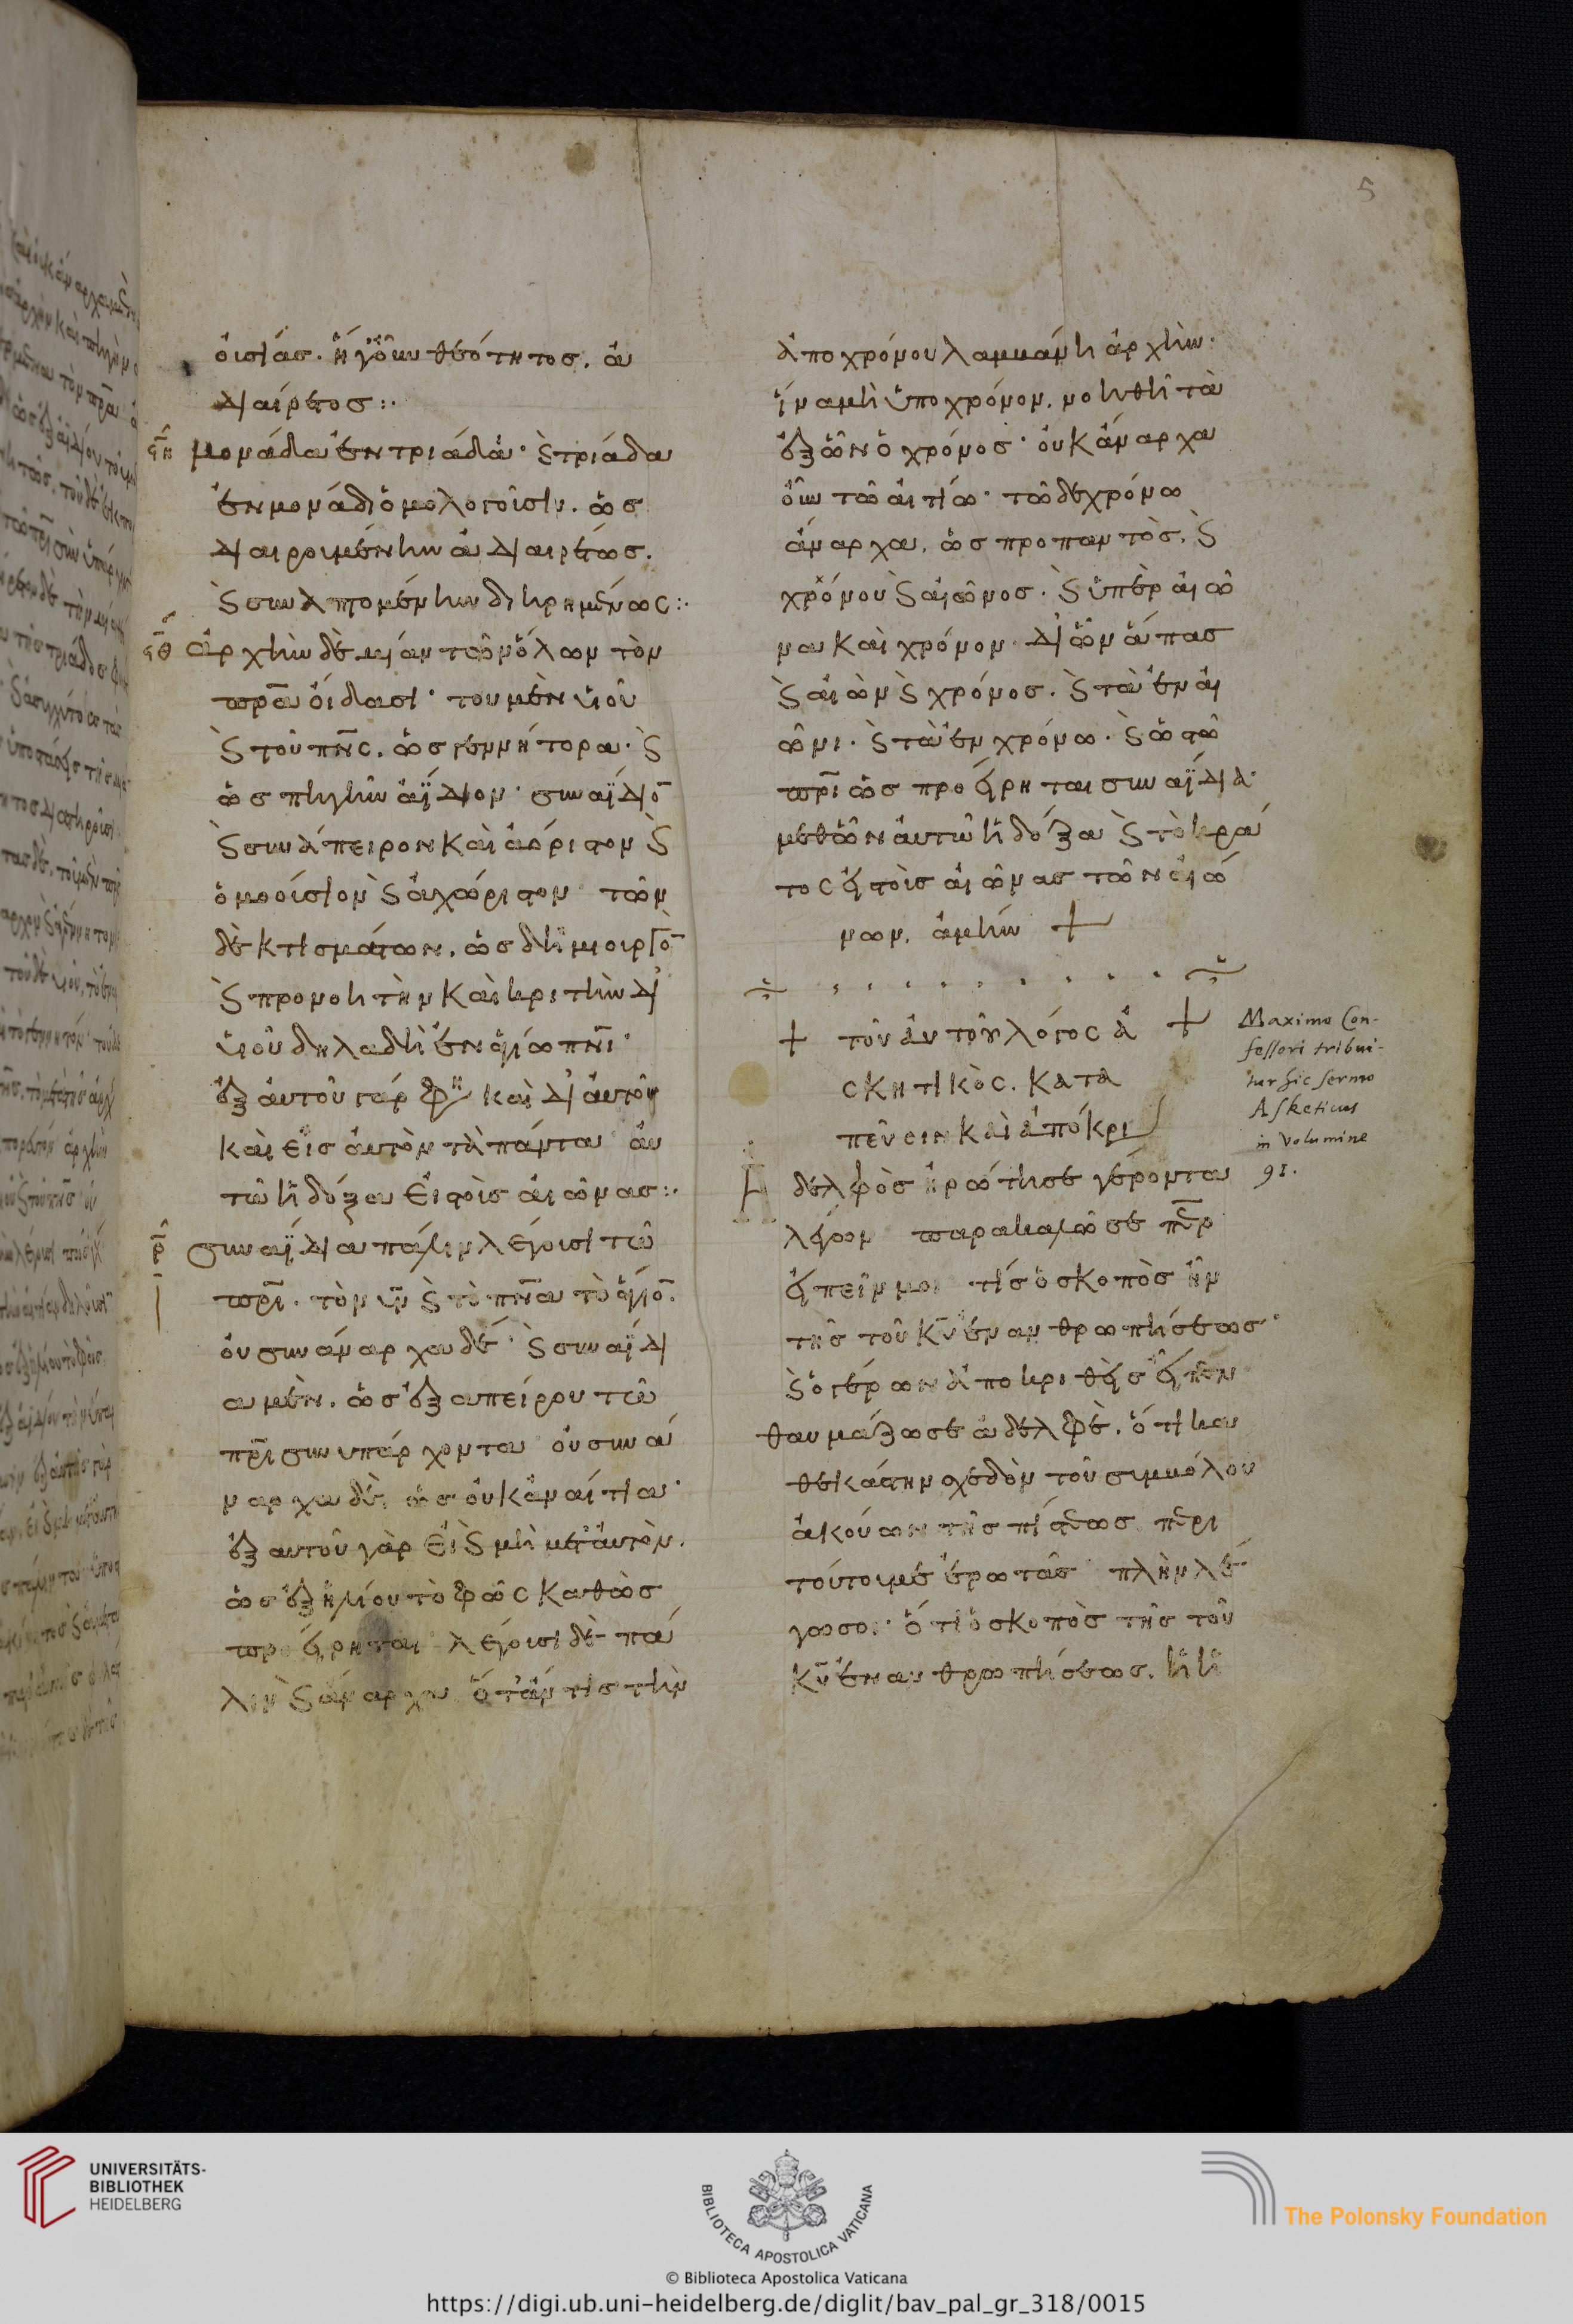 ὀυσίας. ἤγουν θεότητος. ἀ
διαίρετος :·
ϟη μονάδα ἐν τριάδα· ϗ τριάδα
ἐν μονάδι ὁμολογοῦσιν. ὡς
διαιρουμένην ἀδιαιρέτως.
ϗ συναπτομένην διηρημένως :·
ϟθ ἀρχὴν δὲ μίαν τῶν ὅλων τὸν
πρ̅α οἴδασι· του μὲν υἱοῦ
ϗ τοῦ πν̅ς. ὡς γεννήτορα· ϗ
ὡς πηγὴν ἀΐδιον· συναΐδιο̅
ϗ συνάπειρον καὶ ἀόριστον ϗ
ὁμοούσιον ϗ ἀχώριστον τῶν
δὲ κτισμάτων. ὡς δημιουργὸ̅
ϗ προνοητὴν καὶ κριτὴν δι᾽
υἱοῦ δηλαδὴ ἐν ἁγίω πν̅ι·
ἐξ ἀυτοῦ γάρ φη καὶ δι᾽ ἀυτοῦ
καὶ εἰς ἀυτὸν τὰ πάντα ἀυ
τῶ ἡ δόξα εἰς τοὺς αἰῶνας :·
ρ̅ συναΐδια πάλιν λέγουσι τῶ
πρ̅ι. τὸν υ̅ν ϗ τὸ πν̅α τὸ ἅγιο̅.
ὀυ συνάναρχα δέ· ϗ συναΐδι
α μὲν. ὡς ἐξ απείρου τῶ
πρ̅ι συνυπάρχοντα ὀυ συνά
ναρχα δὲ, ὡς ὀυκ ἀναίτια·
ἐξ αυτοῦ γὰρ εἰ ϗ μὴ μετ᾽ ἀυτὸν.
ὡς ἐξ ἡλίου τὸ φῶς καθὼς
προείρηται λέγουσι δὲ πά
λιν ϗ ἄναρχα ὅτ᾽ ἄν τις τὴν
5
ἀπο χρόνου λαμβάνη ἀρχὴν·
ἵνα μὴ ὑπο χρόνον. νοηθῆ τὰ
ἐξ ὧν ὁ χρόνος· ὀυκ ἄναρχα
οὖν τῶ αἰτίω· τῶ δὲ χρόνω
ἄναρχα, ὡς προ παντὸς. ϗ
χρόνου ϗ αἰῶνος. ϗ ὑπὲρ αἰῶ
να καὶ χρόνον δι᾽ ὧν ἅπας
ϗ αἰὼν ϗ χρόνος. ϗ τὰ ἐν αἰ
ῶνι. ϗ τὰ ἐν χρόνω. ϗ ὡς τῶ
πρ̅ι ὡς προείρηται συναΐδια·
μεθ᾽ ὧν ἀυτῶ ἡ δόξα ϗ τὸ κρά
τος εἰς τοὺς αἰῶνας τῶν αἰώ
νων. ἀμήν +
+ τοῦ ἀυτοῦ λόγος ἀ +
σκητικὸς. κατα
πεῦσιν καὶ ἀπόκρι
Ἀδελφὸς ἠρώτησε γέροντα
λέγων παρακαλῶ σε πε̅ρ
εἰπεῖν μοι τίς ὁ σκοπὸς ἦν
τῆς τοῦ κ̅υ ἐνανθρωπήσεως·
ϗ ὁ γέρων ἀποκριθεὶς εἶπεν
θαυμάζω σε ἀδελφὲ, ὅτι κα
θεκάστην σχεδὸν τοῦ συμβόλου
ἀκούων τῆς πίστεως περι
τούτου με ἐρωτᾶς πλὴν λέ
γω σοι· ὅτι ὁ σκοπὸς τῆς τοῦ
κ̅υ ἐνανθρωπήσεως. ἡ ἡ
Maximo Con-
fessori tribui-
tur hic sermo
Asketicus
in volumine
91.
UNIVERSITÄTS-
BIBLIOTHEK
HEIDELBERG
BIBLIOTECA APOSTOLICA VATICANA
The Polonsky Foundation
© Biblioteca Apostolica Vaticana
https://digi.ub.uni-heidelberg.de/diglit/bav_pal_gr_318/0015